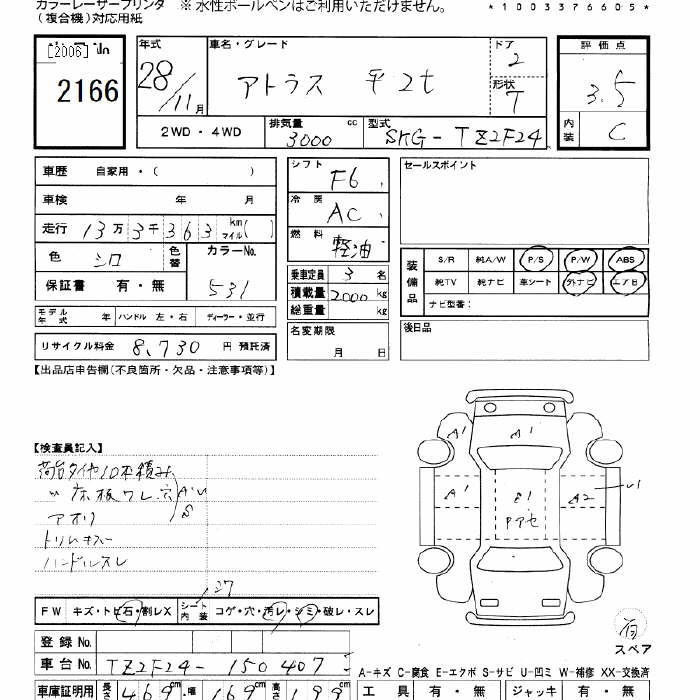 カラーレーザープリンタ ※ 水性ボールペンはご利用いただけません。 *1003376605*
(複合機)対応用紙
[2006]
2166
年式 28/11月
車名・グレード アトラス 平 2t
ドア 2
形状 T
評価点 3.5
内装 C
2WD・4WD
排気量 3000 cc
型式 SKG-TZ2F24
車歴 自家用・( )
車検 年 月
走行 13万3千363 km マイル( )
色 シロ 色替
カラーNo. 531
保証書 有・無
モデル年式 年 ハンドル 左・右 ディーラー・並行
リサイクル料金 8,730 円 預託済
シフト F6
冷房 AC
燃料 軽油
乗車定員 3 名
積載量 2000 kg
総重量 kg
名変期限
月 日
セールスポイント
装備品
S/R 純A/W P/S P/W ABS
純TV 純ナビ 革シート 外ナビ エアB
ナビ型番:
後日品
【出品店申告欄(不良箇所・欠品・注意事項等)】
【検査員記入】
荷台タイヤ10本積み
〃 床板ワレ穴
アオリ
トリムキズ
ハンドルスレ
A1
A1
A1
B1
A2
U1
Pアセ
27
FW キズ・トビ石・割レX シート内装 コゲ・穴・汚レ・シミ・破レ・スレ
登録No.
車台No. TZ2F24-150407
有
スペア
A-キズ C-腐食 E-エクボ S-サビ U-凹ミ W-補修 XX-交換済
車庫証明用 長さ 469cm 幅 169cm 高さ 199cm
工具 有・無 ジャッキ 有・無